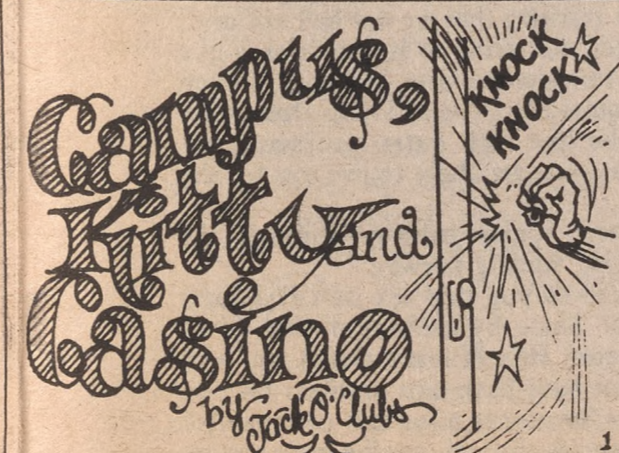 Campus,
Kitty and
Casino
by Jack O'Clubs
KNOCK
KNOCK
1